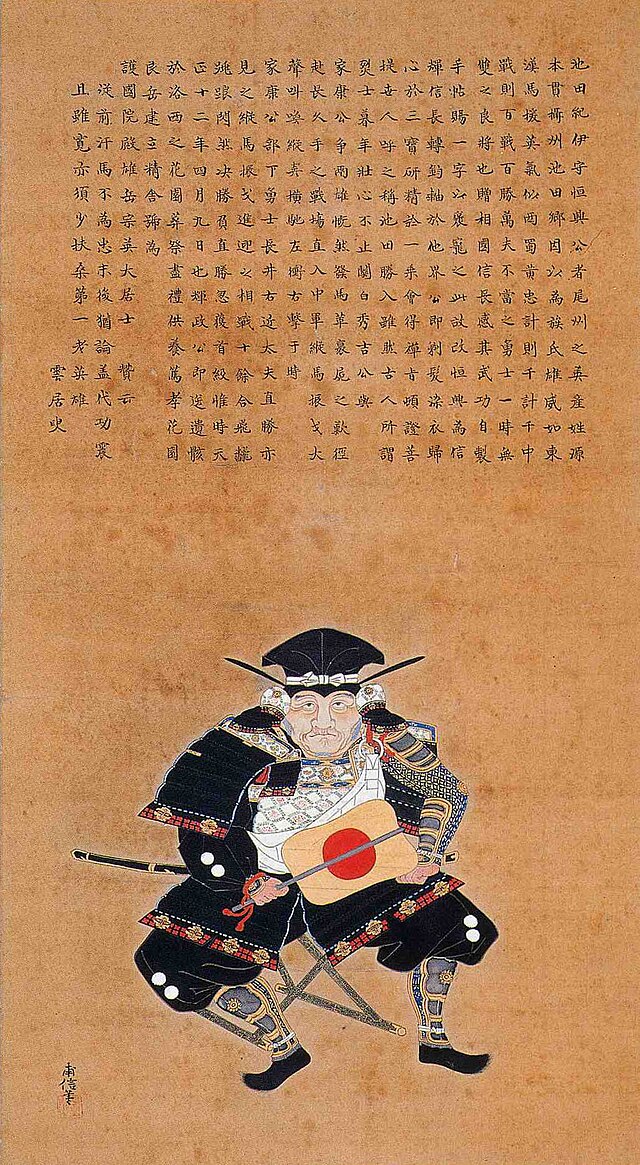 池田紀伊守恒興公者尾州之英産姓源
本貫攝州池田郷因以為族氏雄威如東
漢馬援英氣似西蜀黄忠計則千計千中
戰則百戰百勝萬夫不當之勇士一時無
雙之良将也贈相國信長感其武功自製
手帖賜一字以褒寵之此故改恒興為信
輝信長轉鈞軸於他界公即剃髮染衣歸
心於三寶研精於一乘會得禪旨頓證菩
提世人呼之称池田勝入雖耻古人所謂
烈士暮年壯心不止關白秀吉公與
家康公爭兩雄慨然發馬革裹屍之歎徑
赴長久手之戰場直入中軍縱馬振戈大
聲叫喚縱兵横馳左衝右擊于時
家康公部下勇士長井右近太夫直勝亦
見之縱馬振戈進迎之相戰十餘合飛
跳踉間無决勝負直勝忽獲首級惟時天
正十二年四月九日也輝政公即送遺骸
於洛西之花園葬祭盡禮供養篤孝花園
艮岳建立精舎號為
護國院殿雄岳宗英大居士 贊云
前汗馬不為忠末後猶論蓋代功震
且雖寛亦須少扶桑第一老英雄
雲居叟
甫信筆